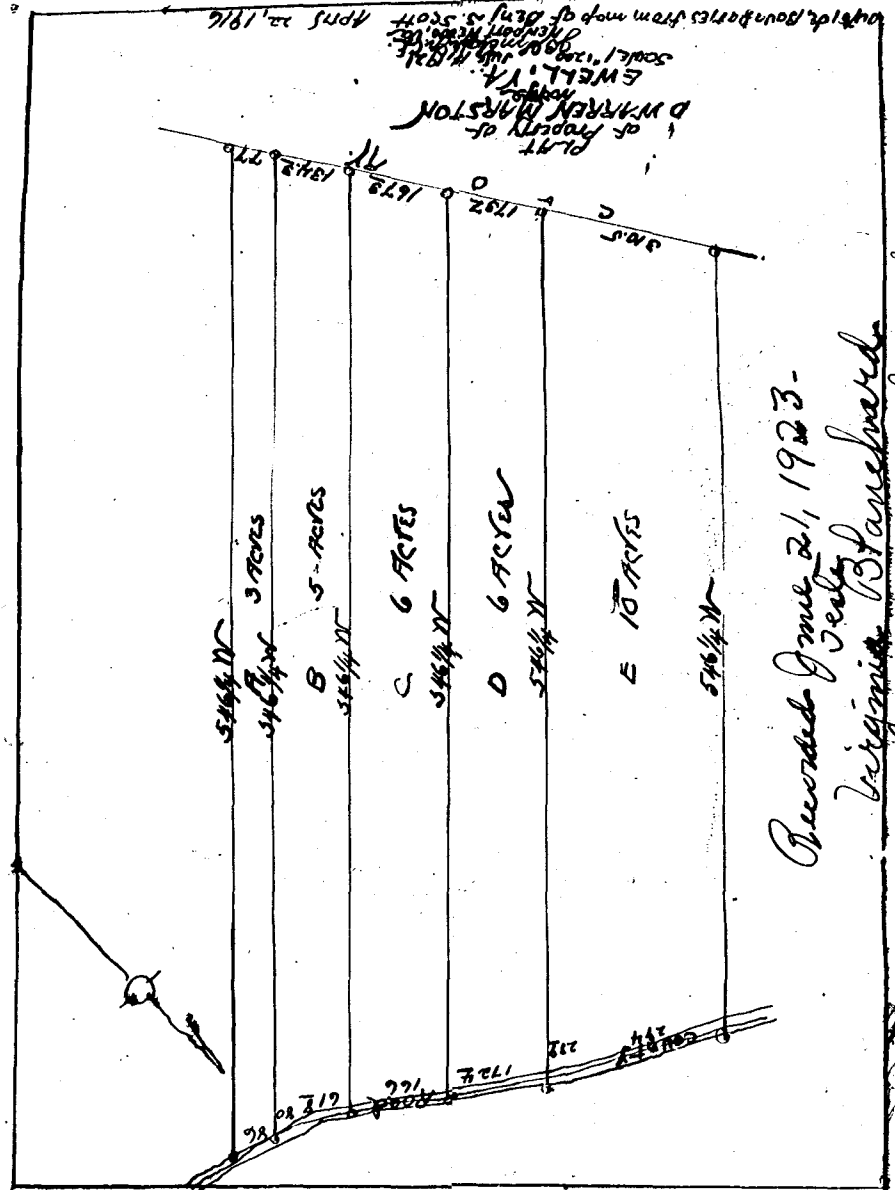 PLAT
of Property of
D WARREN MARSTON
NORGE
EWELL, VA
Scale 1"=200 July 11 1921
Newport News, Va.
Outside Boundaries from map of Benj. S. Scott April 22, 1916
77
134.2
167.9
179.2
310.5
C
O
T
T
S46¼ W
A 3 Acres
S46¼ W
B 5 Acres
S46¼ W
C 6 Acres
S46¼ W
D 6 Acres
S46¼ W
E 10 Acres
S46¼ W
86
80
61.8
166
172.4
294
County
Road
Recorded June 21, 1923-
Teste
Virginia Blanchard